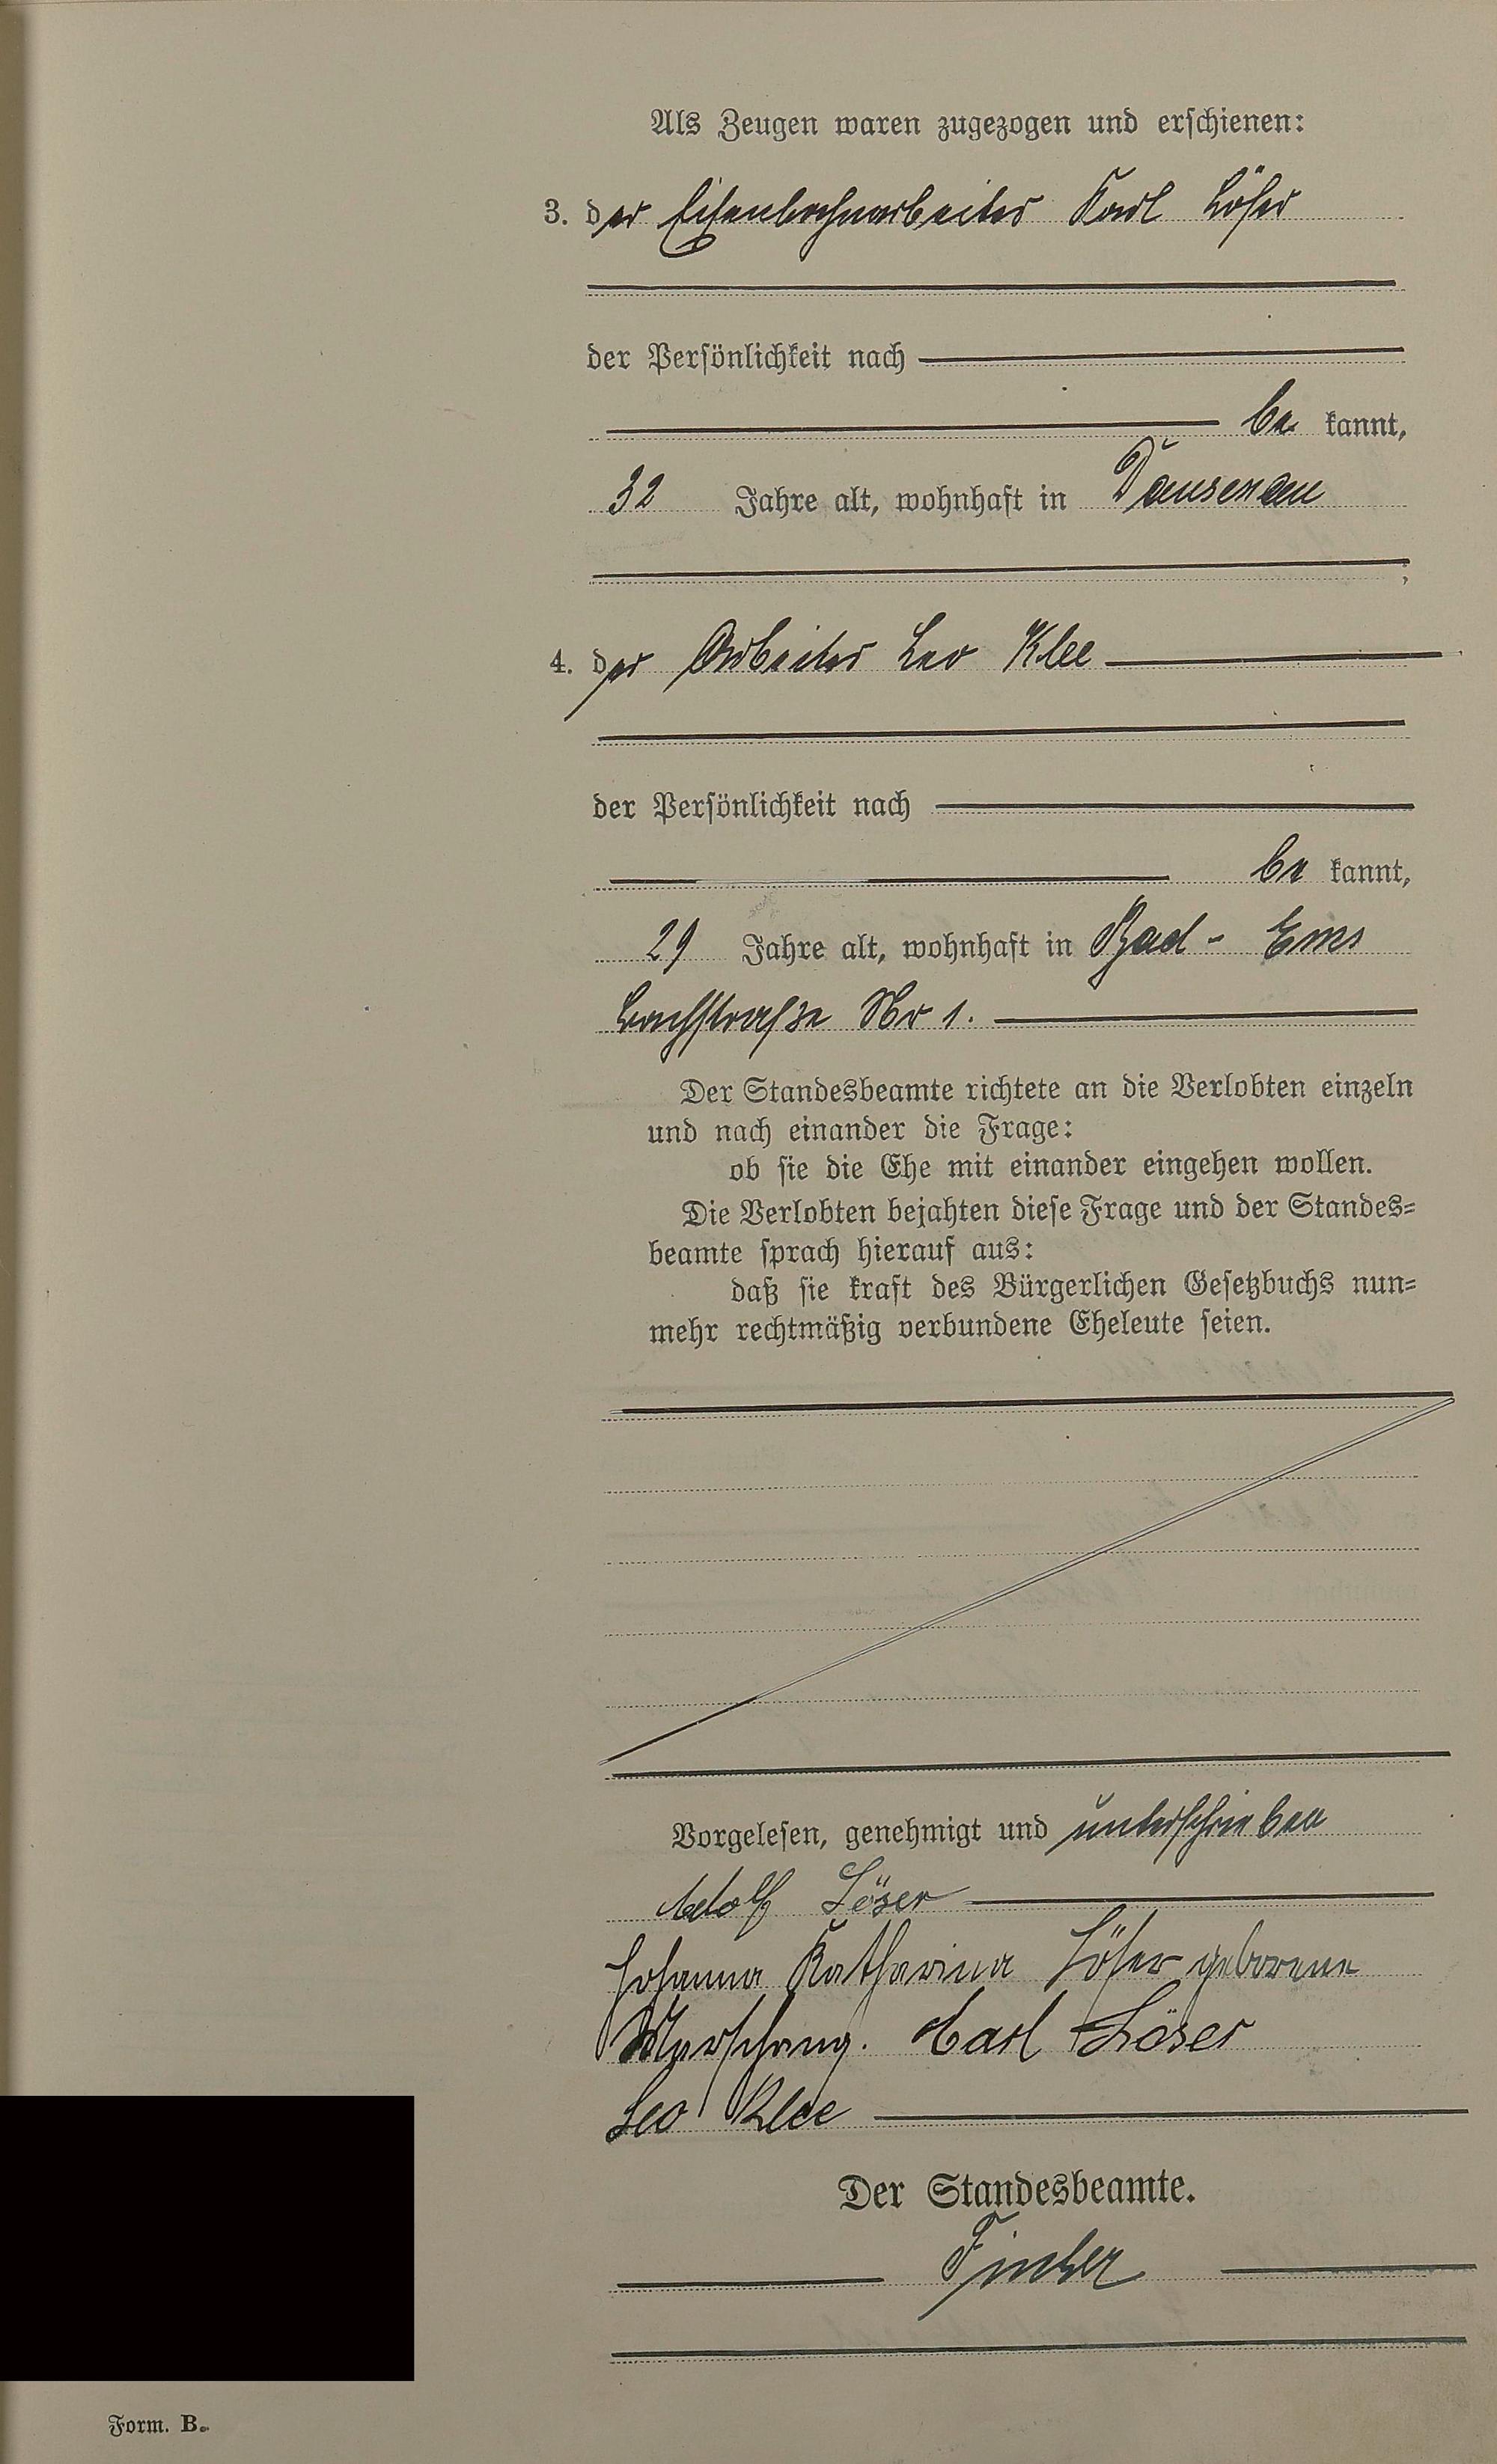 Als Zeugen waren zugezogen und erschienen:
3. der Eisenbahnarbeiter Karl Löser
der Persönlichkeit nach
be kannt,
32 Jahre alt, wohnhaft in Dausenau
;
4. der Arbeiter Leo Klee
der Persönlichkeit nach
be kannt,
29 Jahre alt, wohnhaft in Bad-Ems
Nr 1.
Der Standesbeamte richtete an die Verlobten einzeln
und nach einander die Frage:
ob sie die Ehe mit einander eingehen wollen.
Die Verlobten bejahten diese Frage und der Standes=
beamte sprach hierauf aus:
daß sie kraft des Bürgerlichen Gesetzbuchs nun=
mehr rechtmäßig verbundene Eheleute seien.
Vorgelesen, genehmigt und unterschrieben
Adolf Löser
Johanna Katharina Löser geborene
Carl Löser
Leo Klee
Der Standesbeamte.
Form. B.